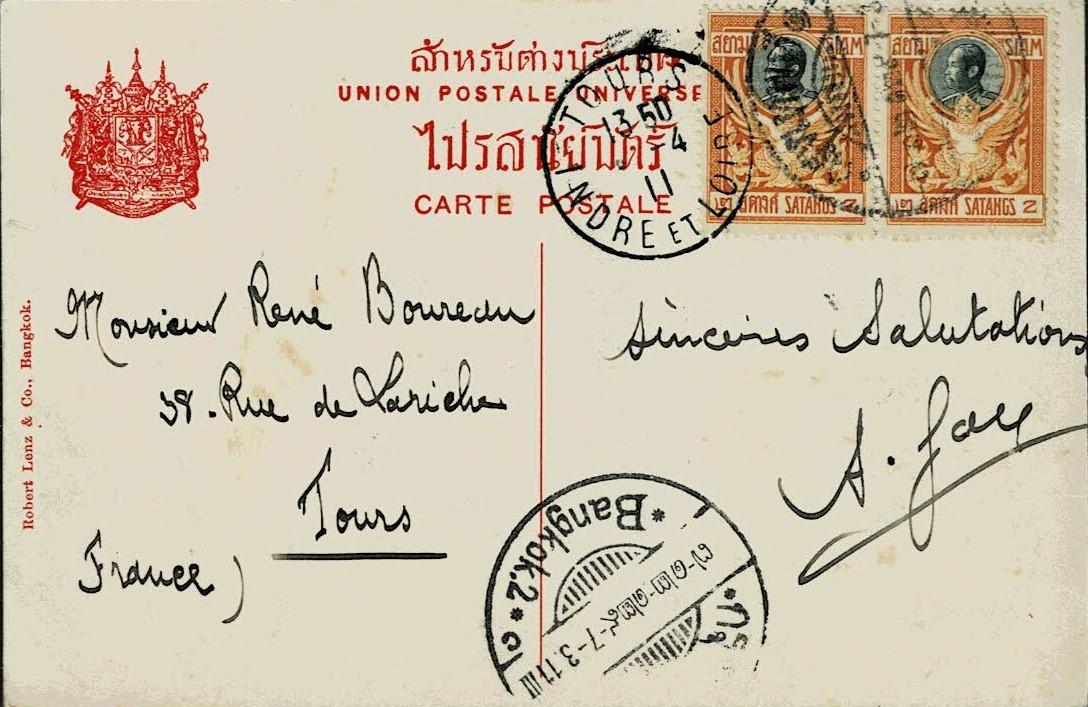 สำหรับต่างประเทศ
UNION POSTALE UNIVERSE
ไปรสนียบัตร์
CARTE POSTALE
TOURS
13 50
5-4
11
INDRE ET LOIRE
สยาม SIAM
๒ สตางค์ SATANGS 2
สยาม SIAM
๒ สตางค์ SATANGS 2
Robert Lenz & Co., Bangkok.
Monsieur René Boureau
38. Rue de Lariche
Tours
France)
Sincères Salutations
A.
* Bangkok.2 *
7-3.11